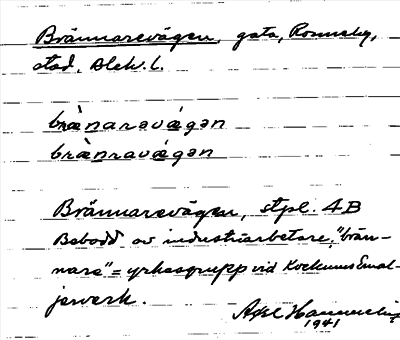 Brännarevägen, gata, Ronneby,
stad, Blek. l.
brä̀narəvǽgən
brä̀nravǽgən
Brännarevägen, stpl. 4B
Bebodd av industriarbetare. "brän-
nare" = yrkesgrupp vid Kockums Emal-
jerverk.
Axel
1941